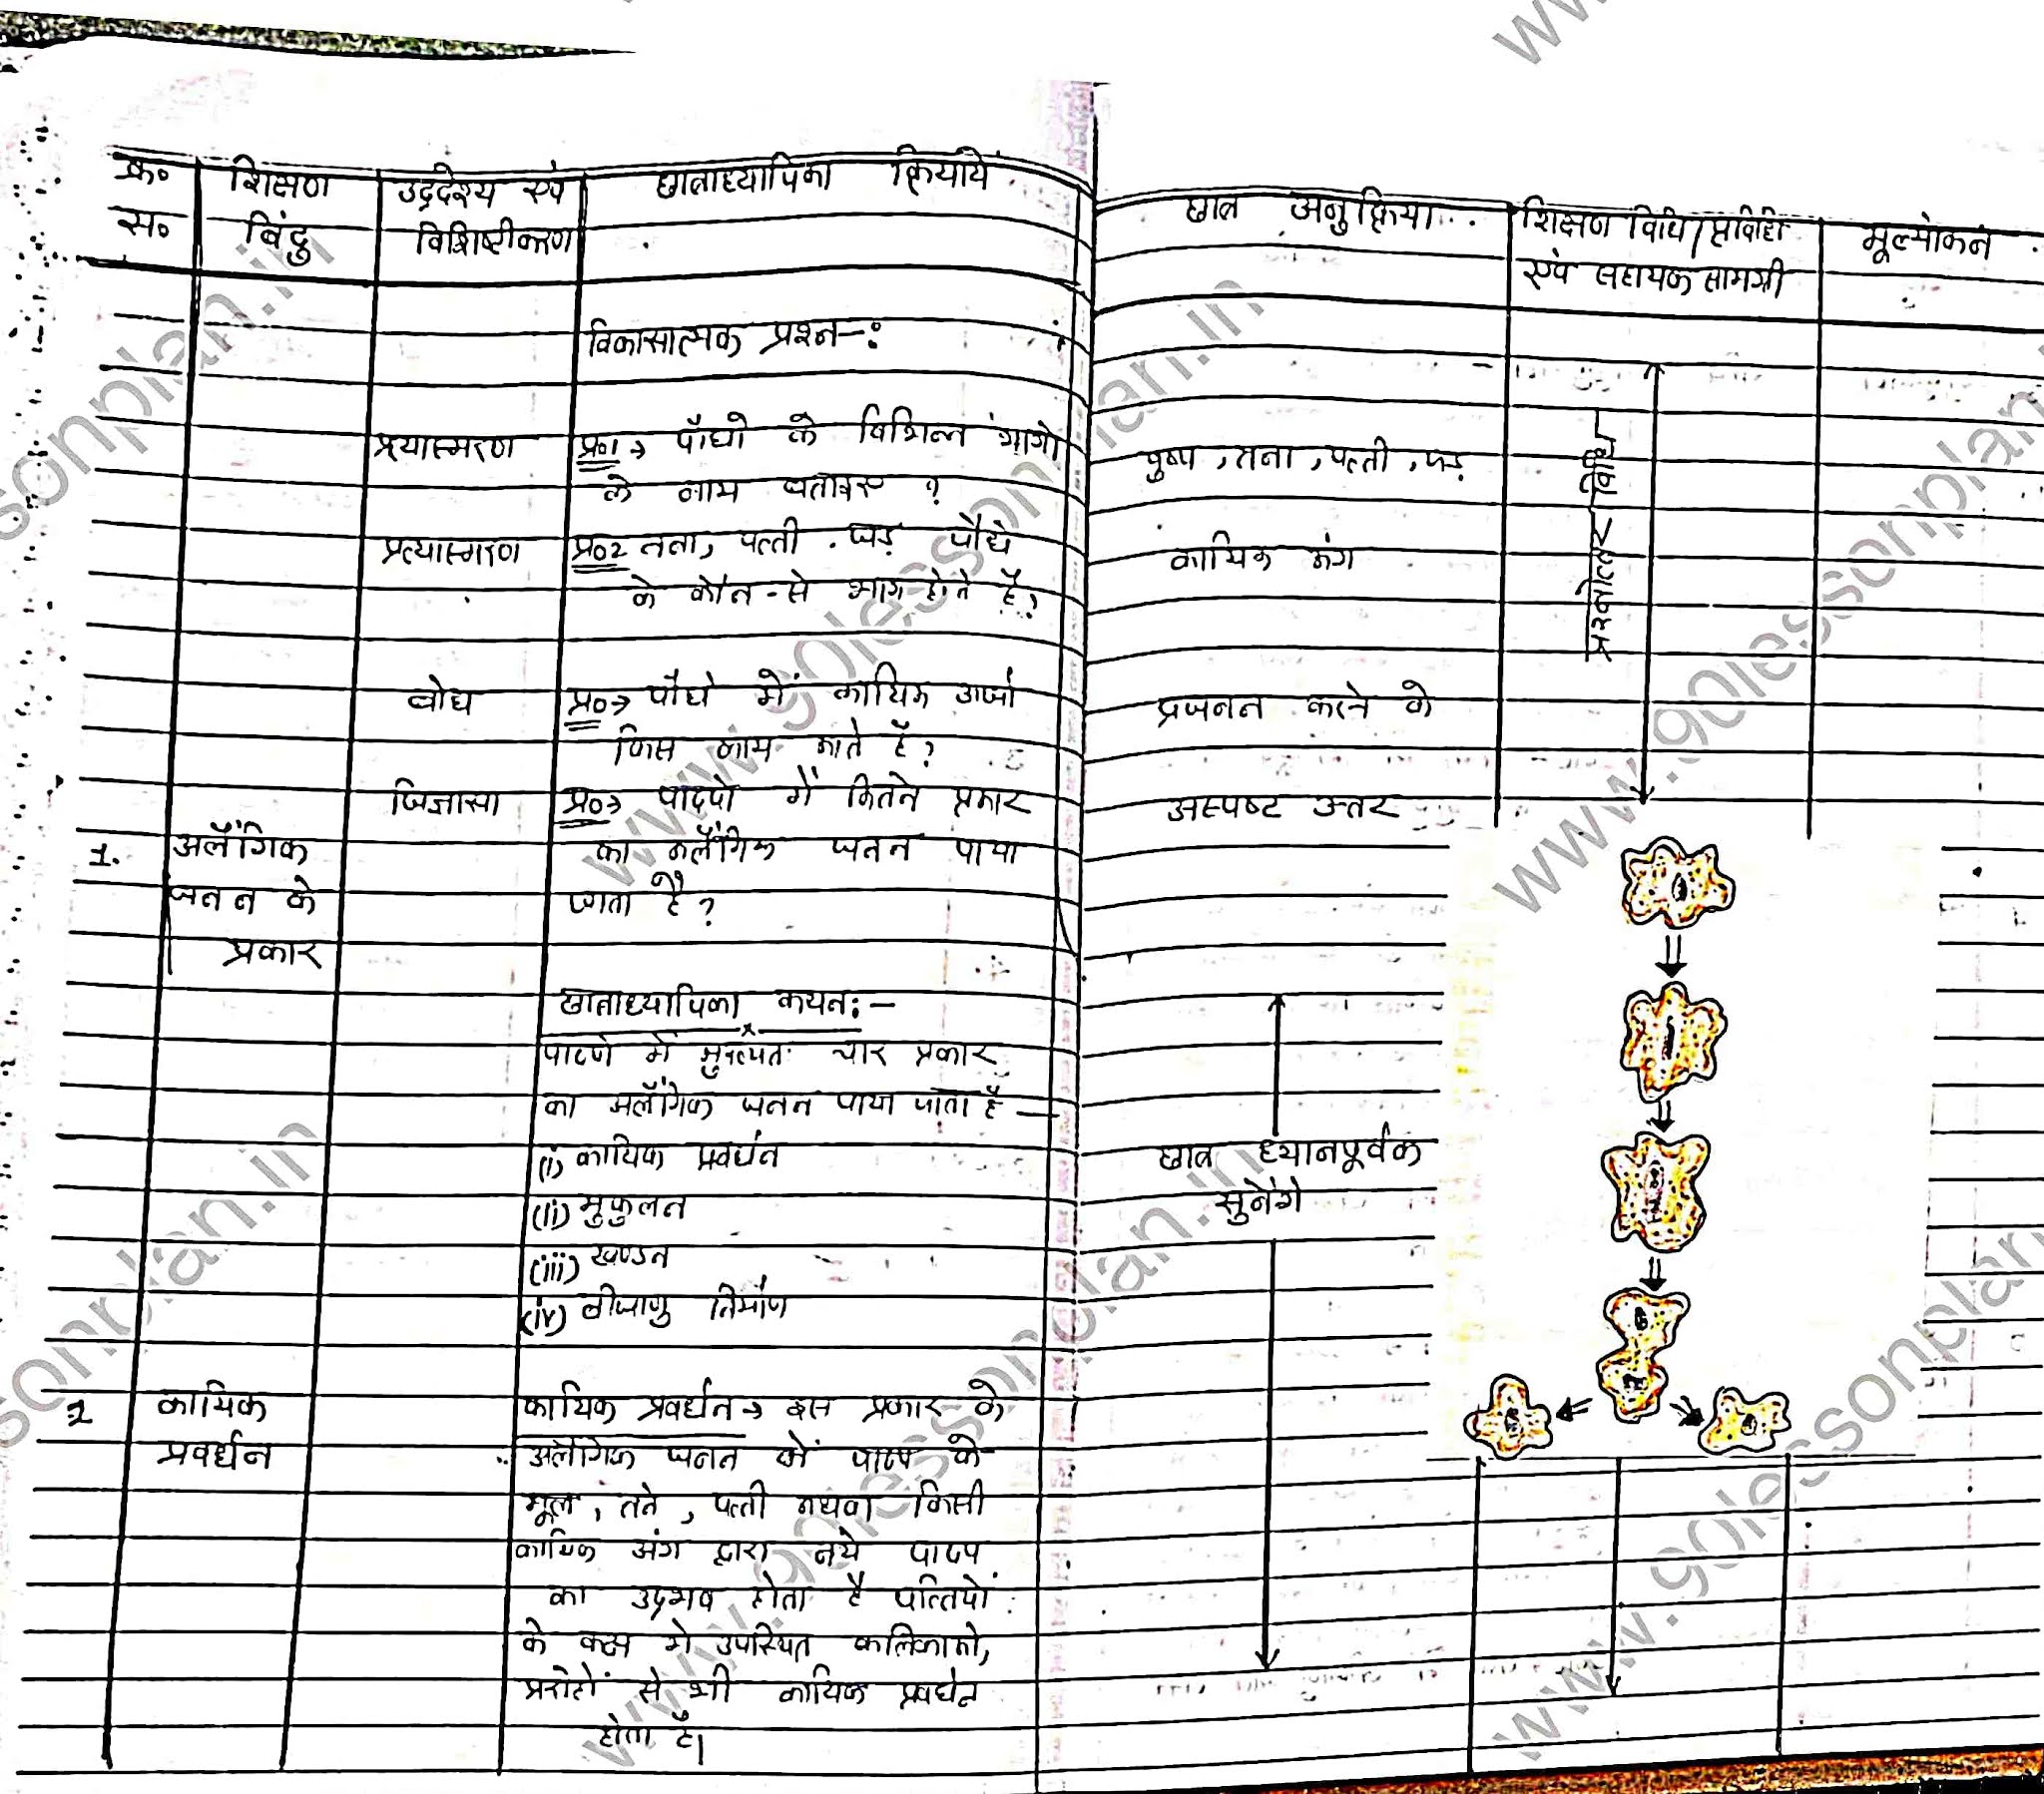 क्र० शिक्षण उद्देश्य एवं छात्राध्यापिका क्रियायें
स० बिंदु विशिष्टीकरण
विकासात्मक प्रश्न-:
प्रत्यास्मरण प्र०1→ पौधों के विभिन्न भागों
के नाम बताइए ?
प्रत्यास्मरण प्र०2 तना, पत्ती, जड़ पौधे
के कौन-से भाग होते हैं?
बोध प्र०→ पौधे में कायिक अंगों
किस काम आते हैं?
जिज्ञासा प्र०→ पादपों में कितने प्रकार
1. अलैंगिक का अलैंगिक जनन पाया
जनन के जाता है?
प्रकार
छात्राध्यापिका कथन:-
पादपों में मुख्यतः चार प्रकार
का अलैंगिक जनन पाया जाता है —
(i) कायिक प्रवर्धन
(ii) मुकुलन
(iii) खण्डन
(iv) बीजाणु निर्माण
2 कायिक कायिक प्रवर्धन→ इस प्रकार के
प्रवर्धन अलैंगिक जनन में पादप के
मूल, तने, पत्ती अथवा किसी
कायिक अंग द्वारा नये पादप
का उद्भव होता है पत्तियों
के कक्ष में उपस्थित कलिकाओं,
प्ररोहों से भी कायिक प्रवर्धन
होता है।
छात्र अनुक्रिया शिक्षण विधि/प्रविधि मूल्यांकन
एवं सहायक सामग्री
पुष्प, तना, पत्ती, जड़
कायिक अंग
प्रश्नोत्तर विधि
प्रजनन करने के
अस्पष्ट उत्तर
छात्र ध्यानपूर्वक
सुनेंगे
www.golessonplan.in
www.golessonplan.in